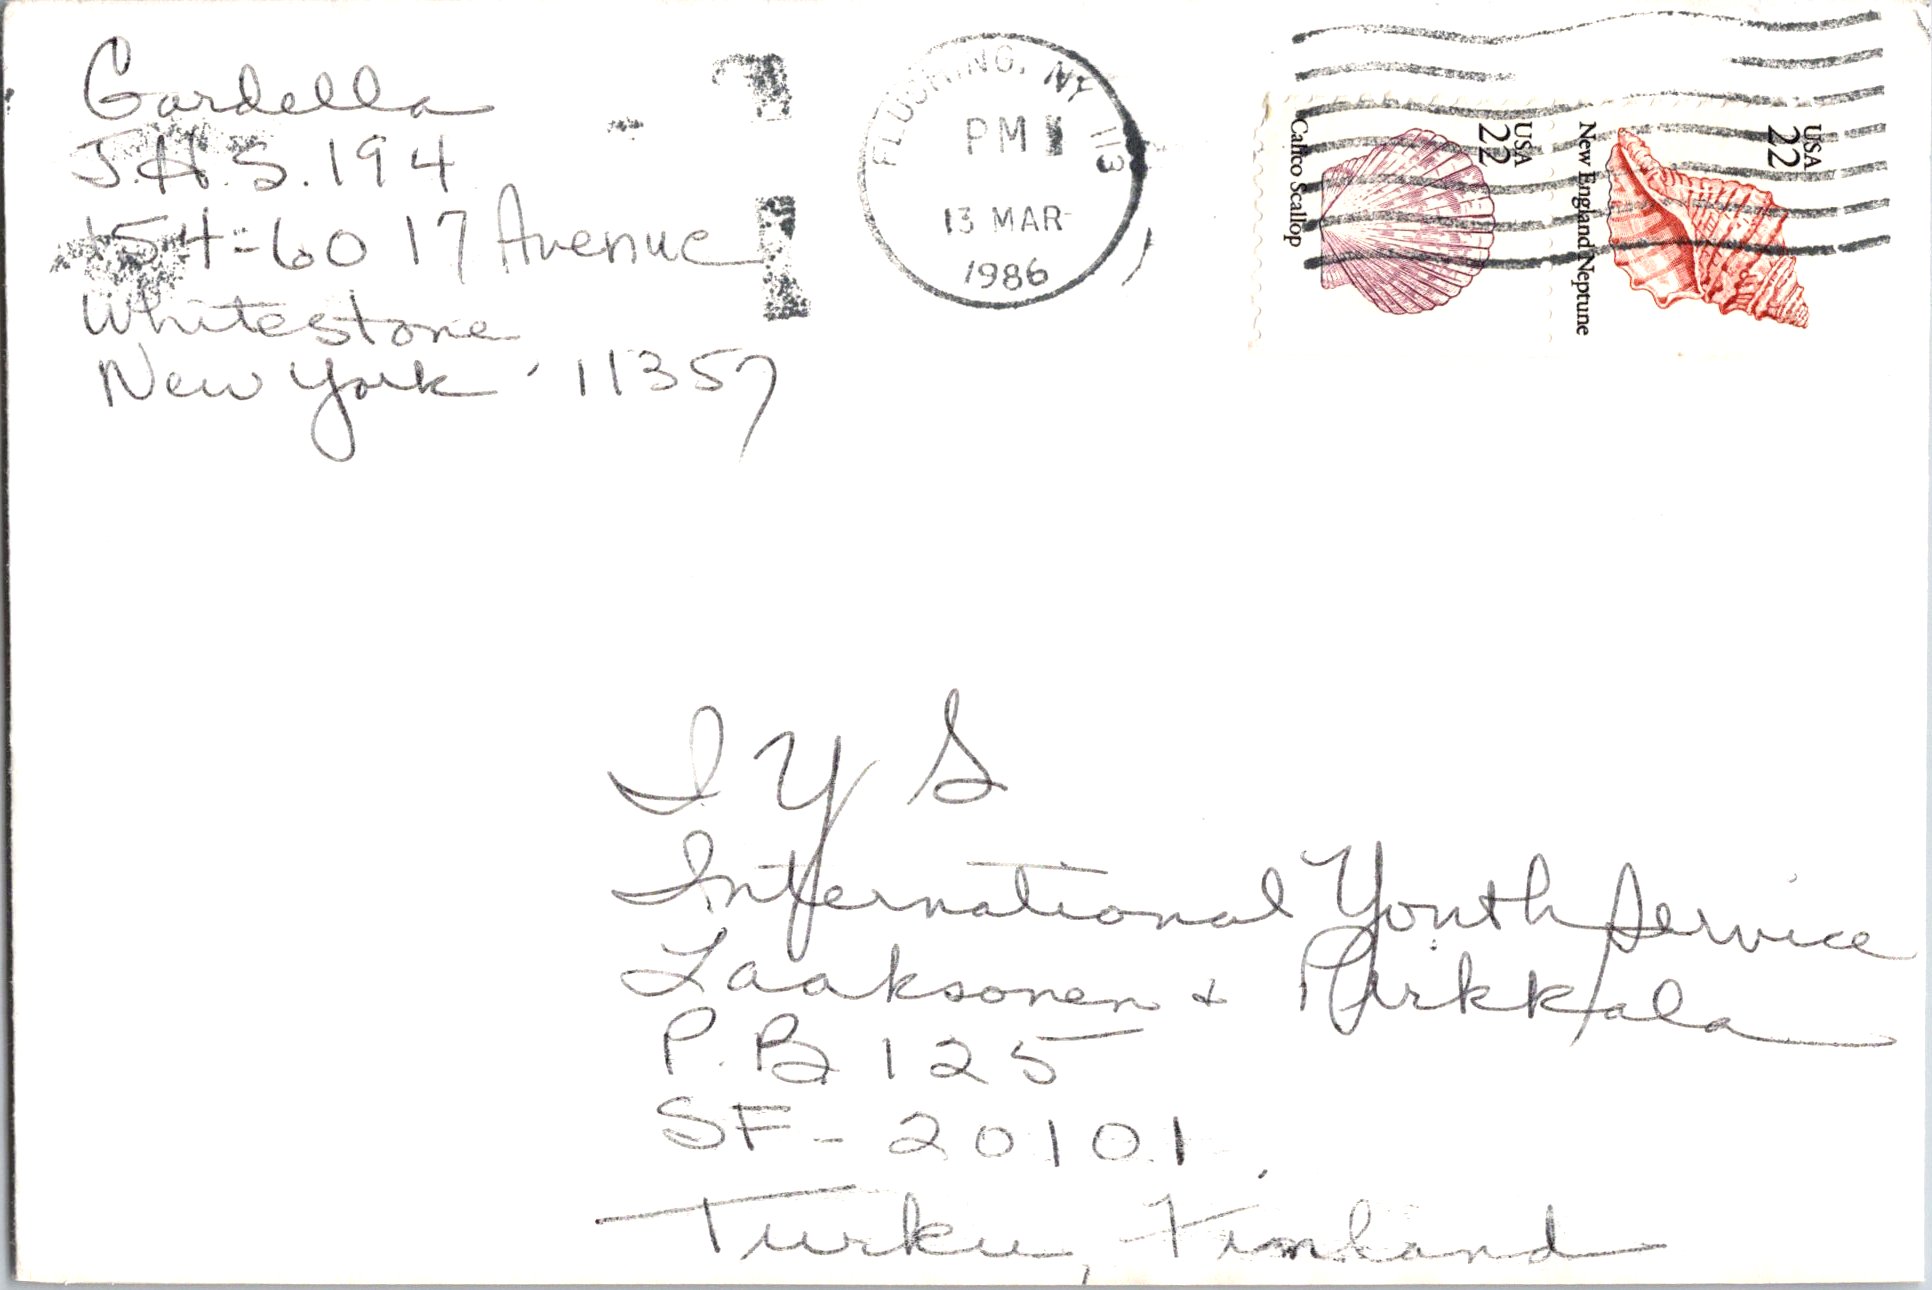 Gardella
J.H.S. 194
154-60 17 Avenue
Whitestone
New York 11357
FLUSHING, NY 113
PM
13 MAR
1986
Calico Scallop
USA
22
New England Neptune
USA
22
I Y S
International Youth Service
Laaksonen + Pirkkala
P.B 125
SF-20101
Turku, Finland